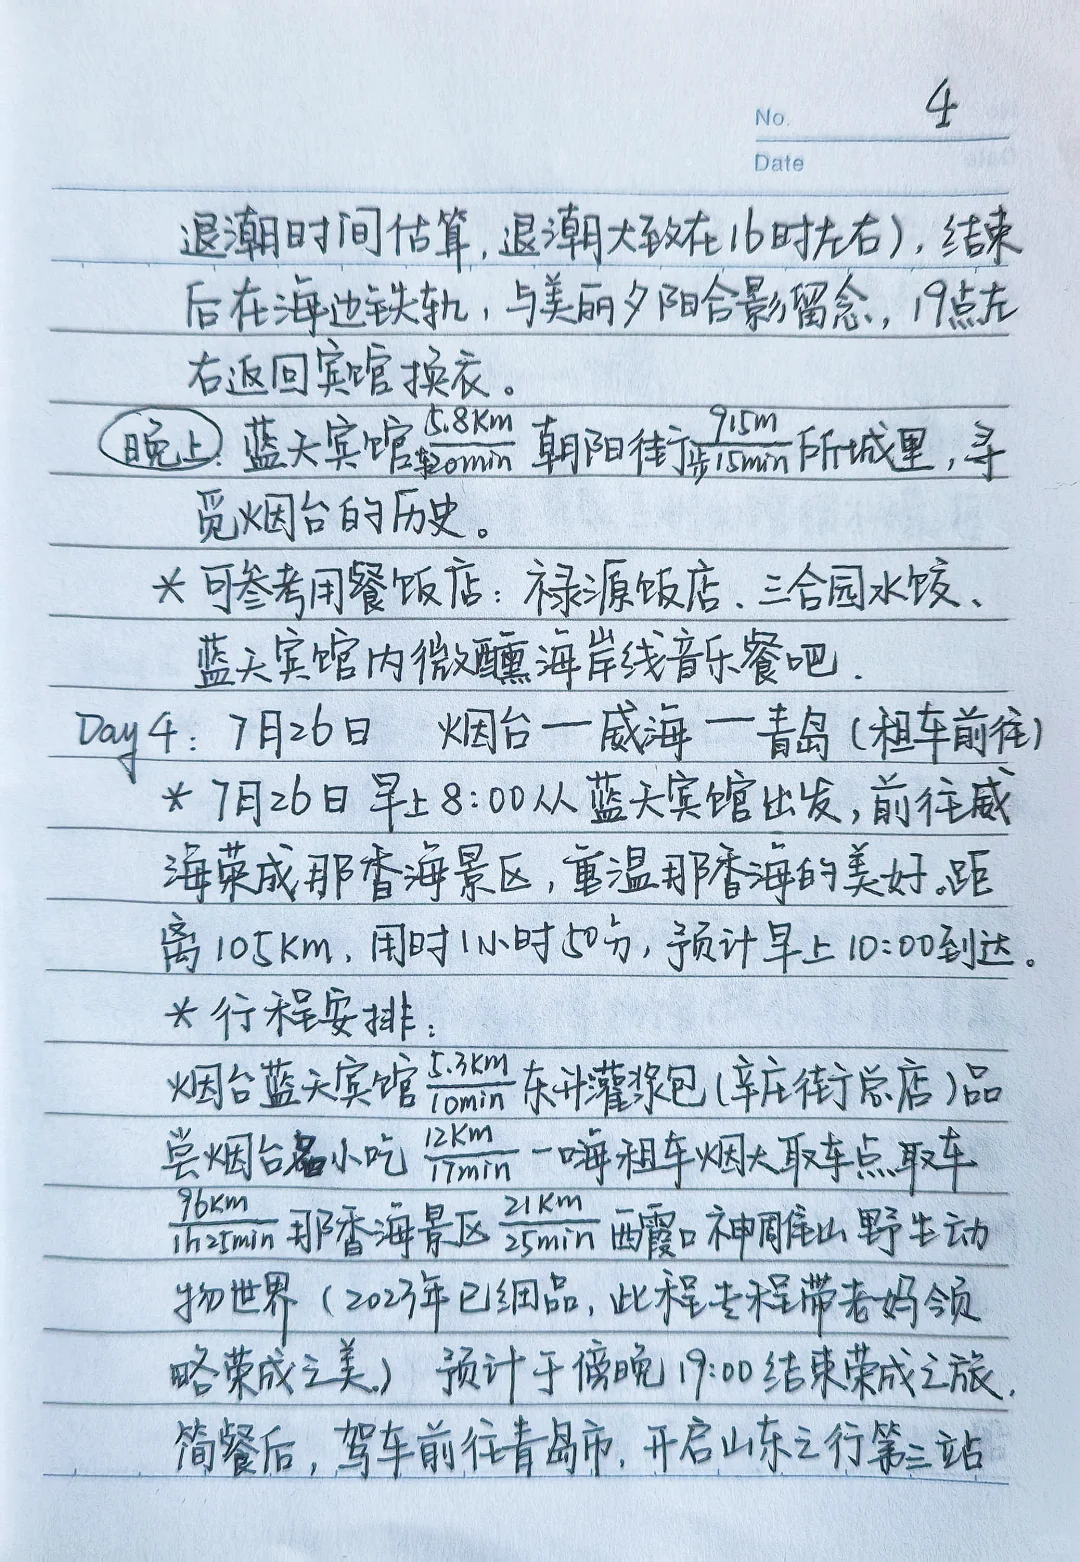 No. 4
Date
退潮时间估算,退潮大致在16时左右),结束
后在海边铁轨,与美丽夕阳合影留念,19点左
右返回宾馆换衣。
晚上:蓝天宾馆 5.8Km/车20min 朝阳街 915m/步15min 所城里,寻
觅烟台的历史。
* 可参考用餐饭店:禄源饭店、三合园水饺、
蓝天宾馆内微醺海岸线音乐餐吧.
Day 4: 7月26日 烟台一威海一青岛(租车前往)
* 7月26日早上8:00从蓝天宾馆出发,前往威
海荣成那香海景区,重温那香海的美好。距
离105Km,用时1小时50分,预计早上10:00到达。
* 行程安排:
烟台蓝天宾馆 5.3Km/10min 东升灌浆包(辛庄街总店)品
尝烟台名小吃 12Km/17min 一嗨租车烟大取车点取车
96Km/1h25min 那香海景区 21Km/25min 西霞口神雕山野生动
物世界(2023年已细品,此程专程带老妈领
略荣成之美。)预计于傍晚19:00结束荣成之旅,
简餐后,驾车前往青岛市,开启山东之行第三站